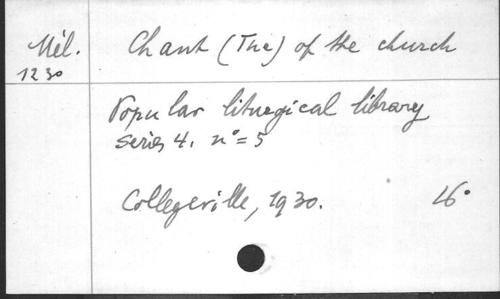 Mél. Chant (The) of the church
1230
Popular liturgical library
series 4. n°= 5
Collegeville, 1930. 16°